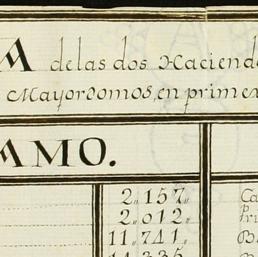 A de las dos Haciend
Mayordomos, en prim ex
AMO.
2,, 157,, Ca
2,, 012,, pri
11,, 741,, Ba
14,, 335,,